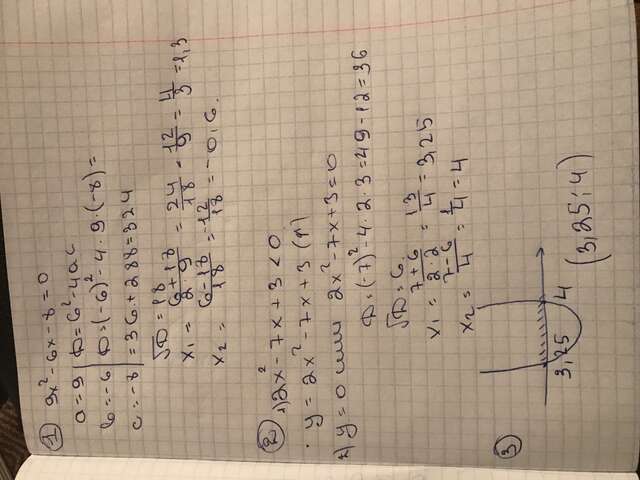 1 9x² - 6x - 8 = 0
a = 9 | D = b² - 4ac
b = -6 | D = (-6)² - 4 · 9 · (-8) =
c = -8 | = 36 + 288 = 324
√D = 18
x₁ = (6+18)/(2·9) = 24/18 = 12/9 = 4/3 = 1,3
x₂ = (6-18)/18 = -12/18 = -0,6.
2 1) 2x² - 7x + 3 < 0
y = 2x² - 7x + 3 (↑)
2) y = 0 или 2x² - 7x + 3 = 0
D = (-7)² - 4 · 2 · 3 = 49 - 12 = 36
√D = 6.
x₁ = (7+6)/(2·2) = 13/4 = 3,25
x₂ = (7-6)/4 = 1/4 = 4
3
3,25 4
(3,25; 4)